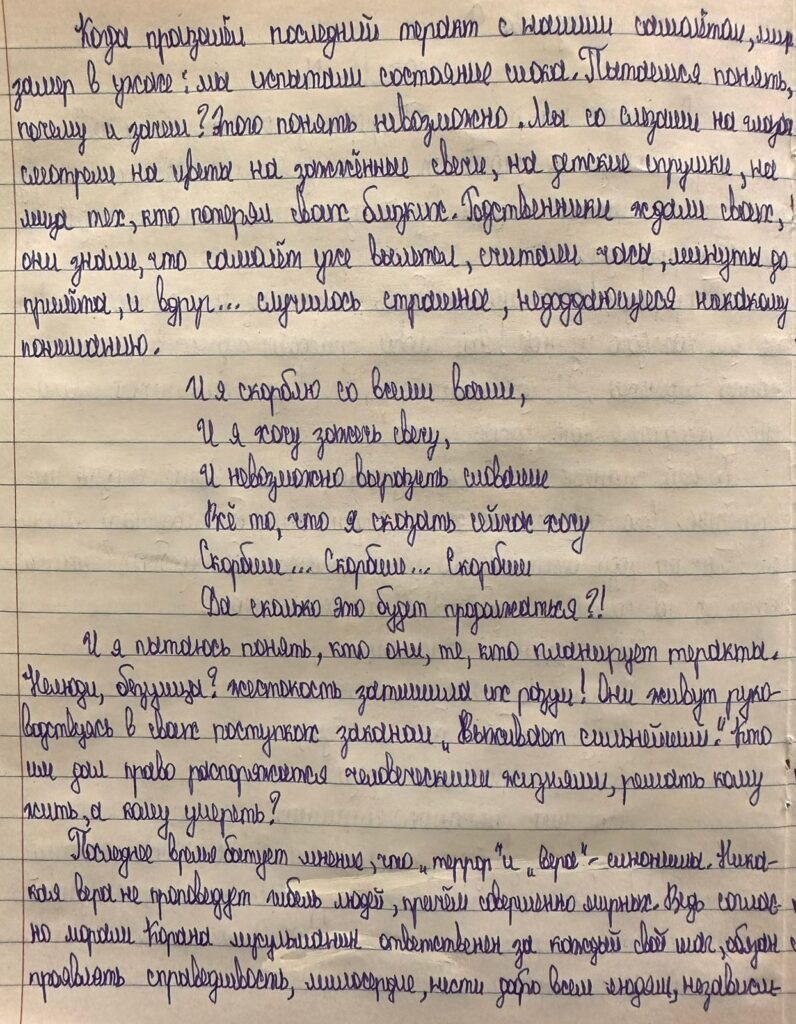 Когда произошёл последний теракт с нашим самолётом, мир
замер в ужасе: мы испытали состояние шока. Пытаешся понять,
почему и зачем? Этого понять невозможно. Мы со слезами на глаза
смотрели на цветы на зажжённые свечи, на детские игрушки, на
лица тех, кто потерял своих близких. Родственники ждали своих,
они знали, что самолёт уже вылетел, считали часы, минуты до
прилёта, и вдруг... случилось страшное, недоддающиеся никакому
пониманию.
И я скорблю со всеми вами,
И я хочу зажечь свечу,
И невозможно выразить словами
Всё то, что я сказать сейчас хочу
Скорбим... Скорбим... Скорбим
Да сколько это будет продолжаться?!
И я пытаюсь понять, кто они, те, кто планирует теракты.
Нелюди, безумцы? жестокость затмила их разум! Они живут руко-
водствуясь в своих поступках законом „Выживает сильнейший." Кто
им дал право распоряжатся человеческими жизнями, решать кому
жить, а кому умереть?
Последнее время бытует мнение, что „террор" и „вера" - синонимы. Ника-
кая вера не проповедует гибель людей, причём совершенно мирных. Ведь соглас-
но морали Корана мусульманин ответственен за каждый свой шаг, обязан
проявлять справедливость, милосердие, нести добро всем людям, независи-